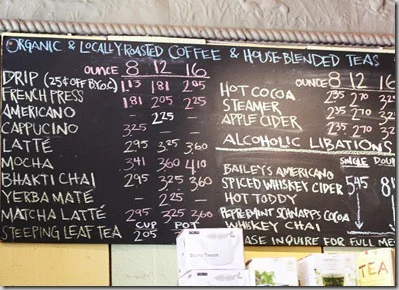 ORGANIC & LOCALLY ROASTED COFFEE & HOUSE-BLENDED TEAS
OUNCE 8 12 16
DRIP (25¢ OFF B.Y.O.C.) 1.81 2.05
FRENCH PRESS 1.81 2.05 2.25
AMERICANO – 2.25 –
CAPPUCINO 3.25 – –
LATTÉ 2.95 3.25 3.60
MOCHA 3.41 3.60 4.10
BHAKTI CHAI 2.95 3.25 3.60
YERBA MATÉ – 2.25 –
MATCHA LATTÉ 2.95 3.25 3.60
CUP POT
STEEPING LEAF TEA 2.05
OUNCE 8 12 16
HOT COCOA 2.35 2.70
STEAMER 2.35 2.70
APPLE CIDER 2.35 2.70
ALCOHOLIC LIBATIONS
SINGLE
BAILEYS AMERICANO
SPICED WHISKEY CIDER 5.45
HOT TODDY
PEPPERMINT SCHNAPPS COCOA
WHISKEY CHAI
INQUIRE FOR FULL
TEA